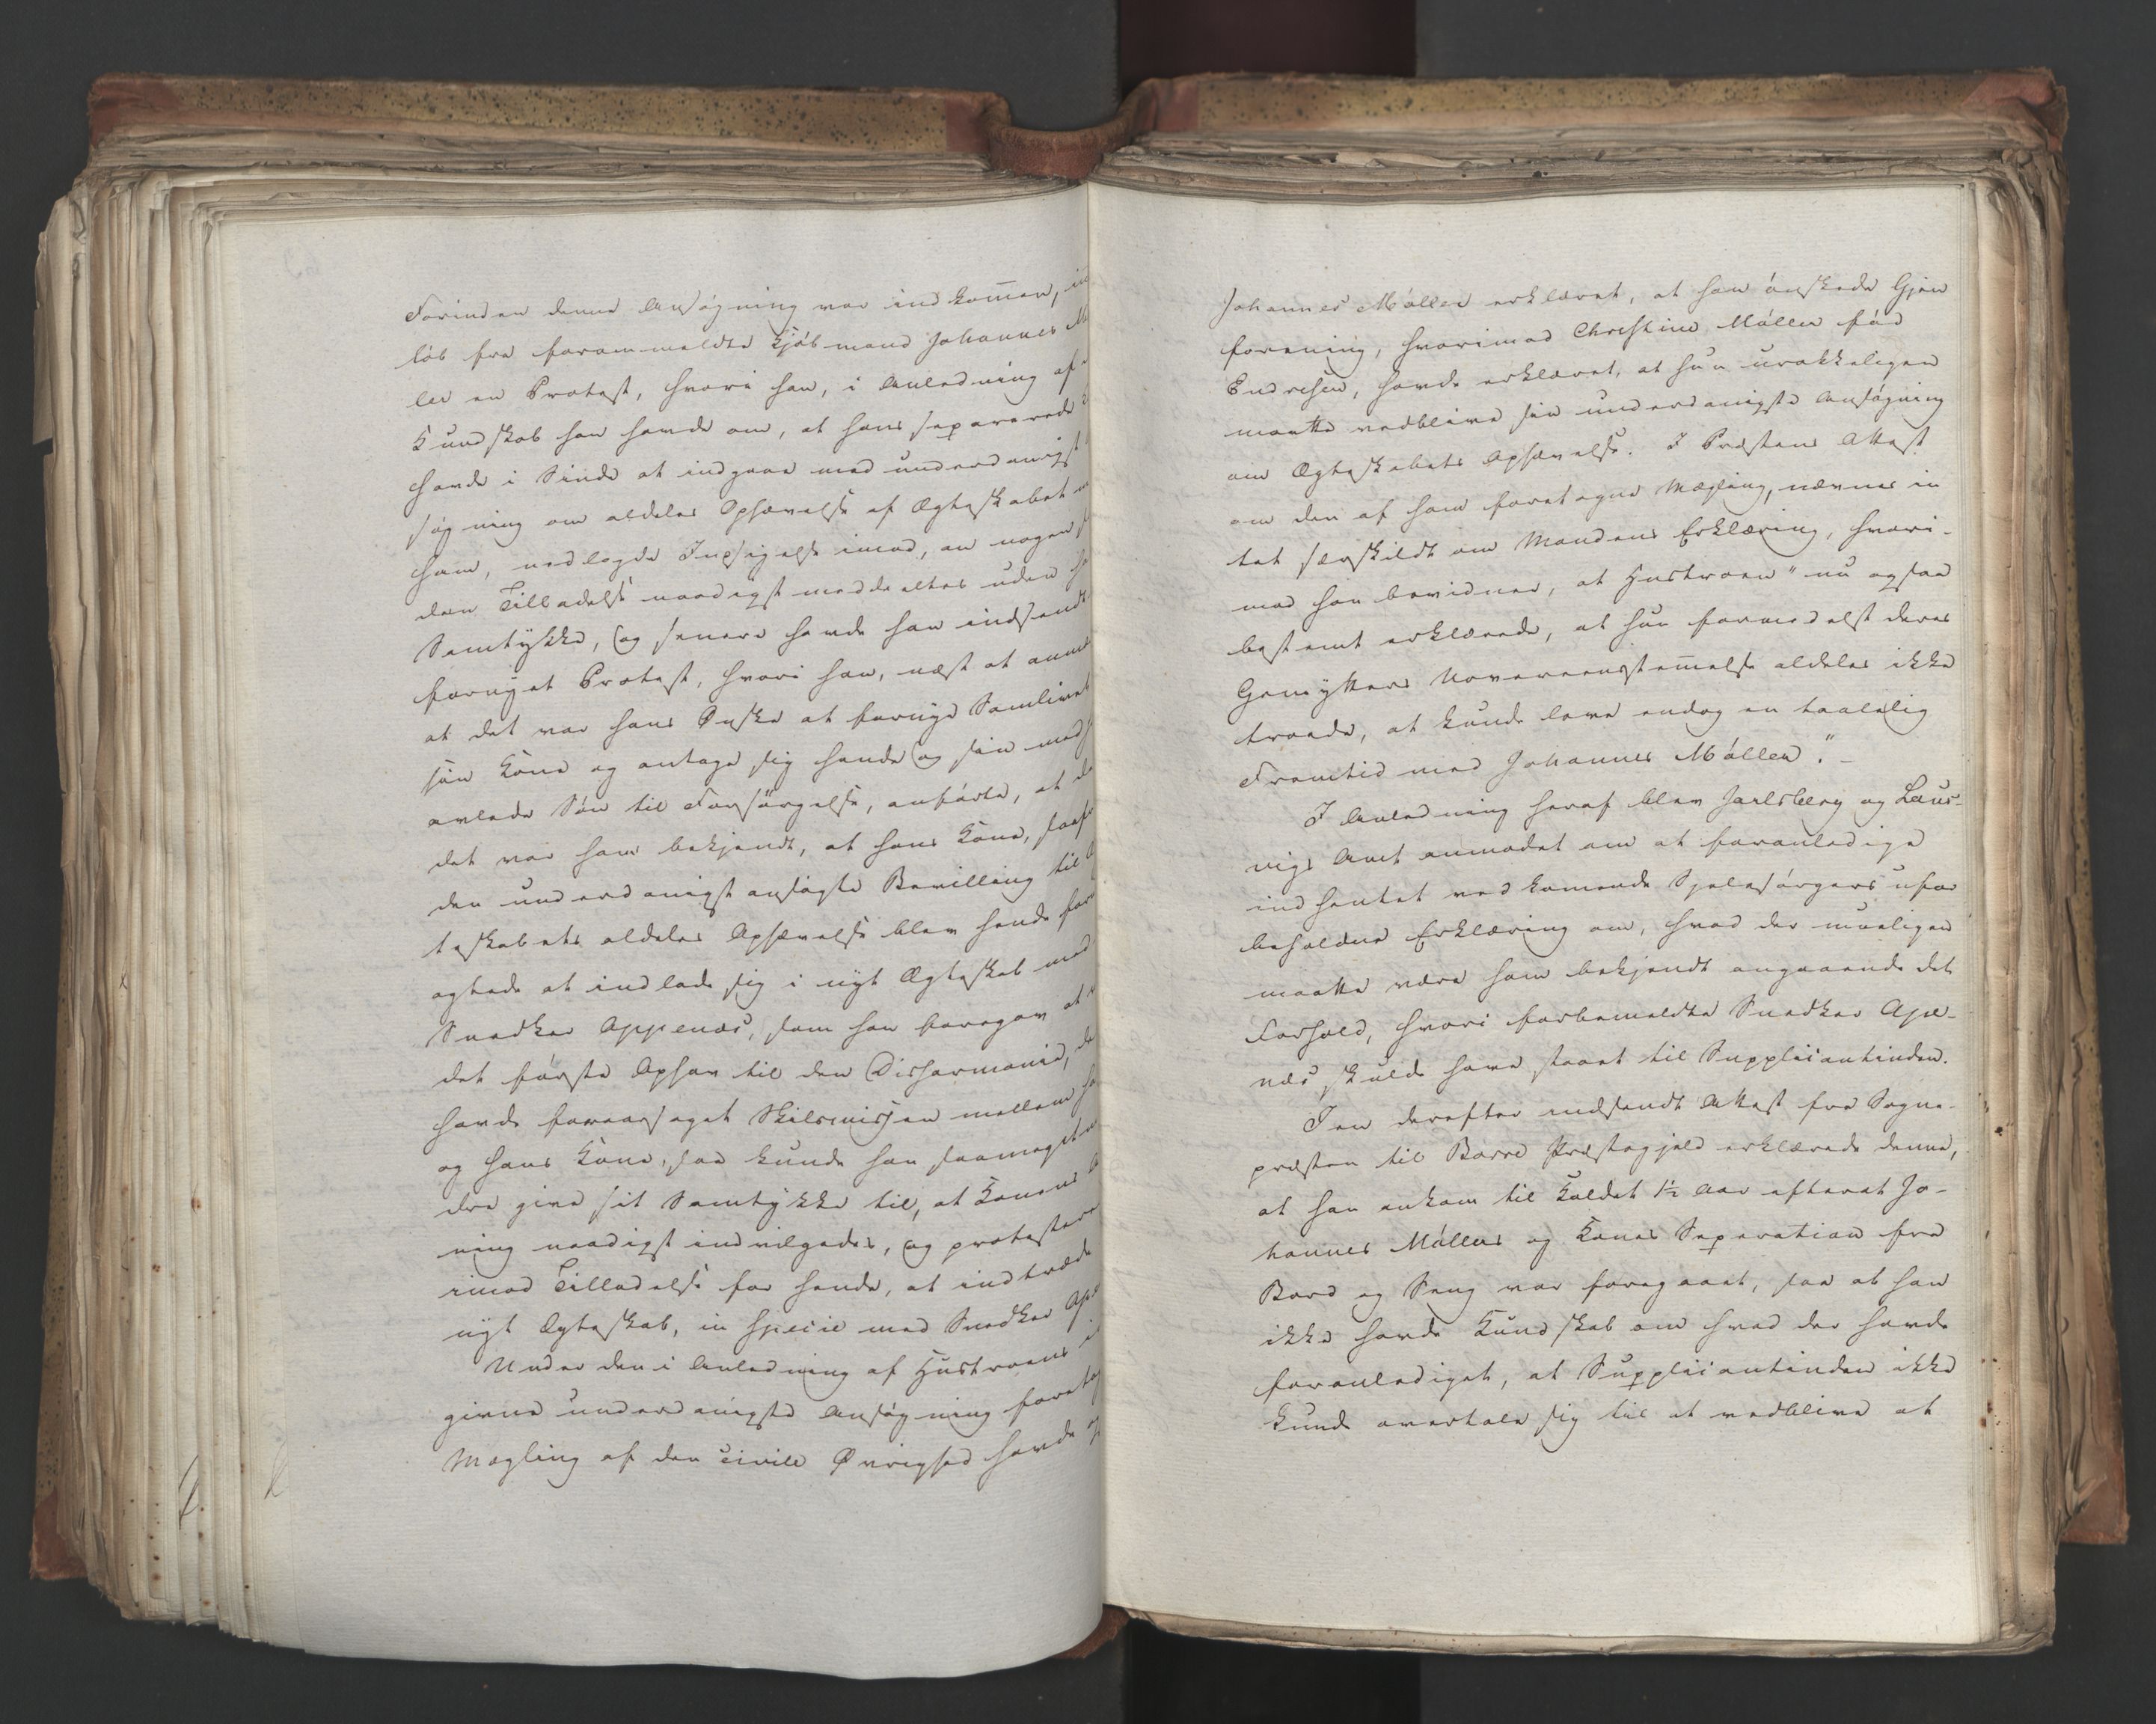 Forinden denne Ansøgning var indkom̅en, in
løb fra forommeldte Kjøbmand Johannes Mø
ler en Protest, hvori han, i Anledning af
Kundskab han havde om, at hans separerede
havde i Sinde at indgaae med underdanigst
søgning om aldeles Ophævelse af Ægteskabet m
ham, nedlagde Indsigelse imod, at nogen
dan Tilladelse naadigst meddeeltes uden ha
Samtykke, og senere havde han indsendt
fornyet Protest, hvori han, næst at anmel
at det var hans Ønske at fornye Samlivet
sin Kone og antage sig hende og sin med
avlede Søn til Forsørgelse, anførte, at da
det var ham bekjendt, at hans Kone, saafr
den underdanigst ansøgte Bevilling til
teskabets aldeles Ophævelse blev hende for
agtede at indlade sig i nyt Ægteskab med
Snedker Appenæs, som han foregav at
det første Ophav til den Disharmonie, de
havde foraarsaget Skilsmissen mellem ha
og hans Kone, saa kunde han saameget m
dre give sit Samtykke til, at Konens A
ning naadigst indvilgedes, og protestere
imod Tilladelse for hende, at indtræde
nyt Ægteskab, in specie med Snedker Ape
Under den i Anledning af Hustruens i
givne underdanigste Ansøgning foretag
Mægling af den civile Øvrighed havde og
Johannes Møller erklæret, at han ønskede Gjen
forening, hvorimod Christine Møller fød
Endresen, havde erklæret, at hun urokkeligen
maatte vedblive sin underdanigste Ansøgning
om Ægteskabets Ophævelse. I Præstens Attest
om den af ham foretagne Mægling, nævnes in
tet særskildt om Mandens Erklæring, hvori-
mod han bevidner, at Hustruen "nu ogsaa
bestemt erklærede, at hun formedelst deres
Gemytters Uovereenstem̅else aldeles ikke
troede, at kunde love endog en taalelig
Fremtid med Johannes Møller." -
I Anledning heraf blev Jarlsberg og Laur-
vigs Amt anmodet om at foranledige
indhentet vedkom̅ende Sjelesørgers ufor
beholdne Erklæring om, hvad der mueligen
maatte være ham bekjendt angaaende det
Forhold, hvori forbemeldte Snedker Ape-
næs skulde have staaet til Supplicantinden.
I en derefter indsendt Attest fra Sogne-
præsten til Borre Præstegjeld erklærede denne,
at han ankom til Kaldet 1½ Aar efterat Jo-
hannes Møllers og Kones Separation fra
Bord og Seng var foregaaet, saa at han
ikke havde Kundskab om hvad der havde
foranlediget, at Supplicantinden ikke
kunde overtale sig til at vedblive at